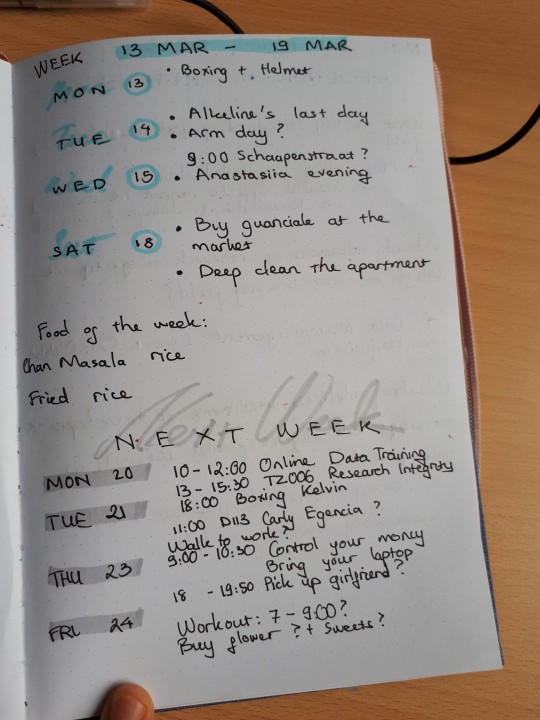 WEEK 13 MAR - 19 MAR
MON 13 • Boxing + Helmet
• Alkeline's last day
TUE 14 • Arm day?
9:00 Schaapenstraat?
WED 15 • Anastasiia evening
• Buy guanciale at the
SAT 18 market
• Deep clean the apartment
Food of the week:
Chan Masala rice
Fried rice
Next Week
NEXT WEEK
MON 20 10-12:00 Online Data Training
13-15:30 TZ006 Research Integrity
18:00 Boxing Kelvin
TUE 21 11:00 D113 Carly Egencia?
Walk to work?
THU 23 9:00-10:30 Control your money
Bring your laptop
18 -19:50 Pick up girlfriend?
FRI 24 Workout: 7-9:00?
Buy flower ? + Sweets?